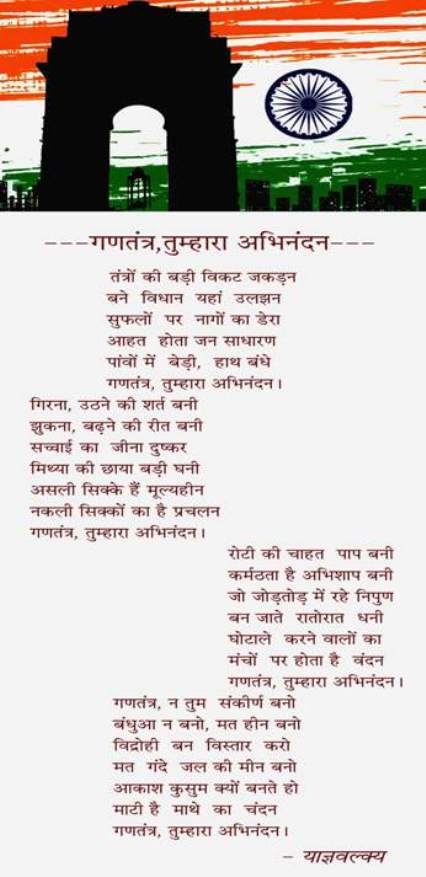 ---गणतंत्र,तुम्हारा अभिनंदन---
तंत्रों की बड़ी विकट जकड़न
बने विधान यहां उलझन
सुफलों पर नागों का डेरा
आहत होता जन साधारण
पांवों में बेड़ी, हाथ बंधे
गणतंत्र, तुम्हारा अभिनंदन।
गिरना, उठने की शर्त बनी
झुकना, बढ़ने की रीत बनी
सच्चाई का जीना दुष्कर
मिथ्या की छाया बड़ी घनी
असली सिक्के हैं मूल्यहीन
नकली सिक्कों का है प्रचलन
गणतंत्र, तुम्हारा अभिनंदन।
रोटी की चाहत पाप बनी
कर्मठता है अभिशाप बनी
जो जोड़तोड़ में रहे निपुण
बन जाते रातोरात धनी
घोटाले करने वालों का
मंचों पर होता है वंदन
गणतंत्र, तुम्हारा अभिनंदन।
गणतंत्र, न तुम संकीर्ण बनो
बंधुआ न बनो, मत हीन बनो
विद्रोही बन विस्तार करो
मत गंदे जल की मीन बनो
आकाश कुसुम क्यों बनते हो
माटी है माथे का चंदन
गणतंत्र, तुम्हारा अभिनंदन।
- याज्ञवल्क्य